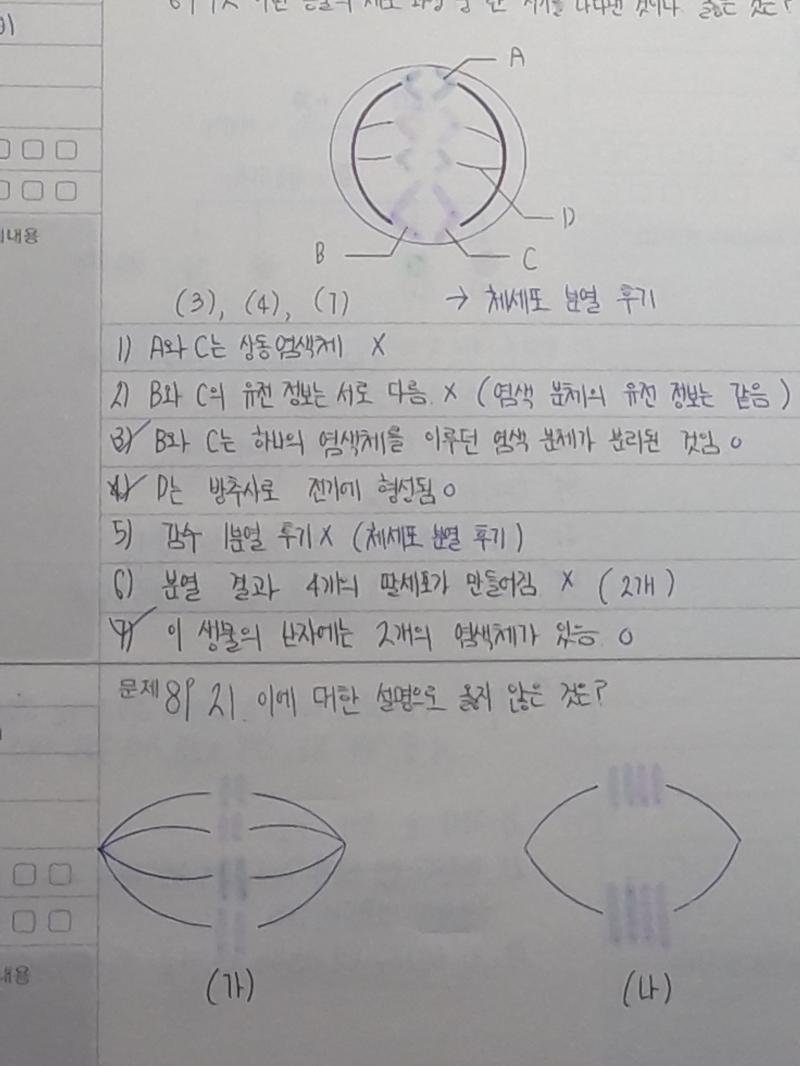 옳은 것은?
A
D
B
C
(3), (4), (7) → 체세포 분열 후기
내용
1) A와 C는 상동염색체 X
2) B와 C의 유전 정보는 서로 다름. X (염색 분체의 유전 정보는 같음)
3) B와 C는 하나의 염색체를 이루던 염색 분체가 분리된 것임 O
4) D는 방추사로 전기에 형성됨 O
5) 감수 1분열 후기 X (체세포 분열 후기)
6) 분열 결과 4개의 딸세포가 만들어짐 X (2개)
7) 이 생물의 난자에는 2개의 염색체가 있음 O
문제 8P 21. 이에 대한 설명으로 옳지 않은 것은?
(가)
(나)
내용